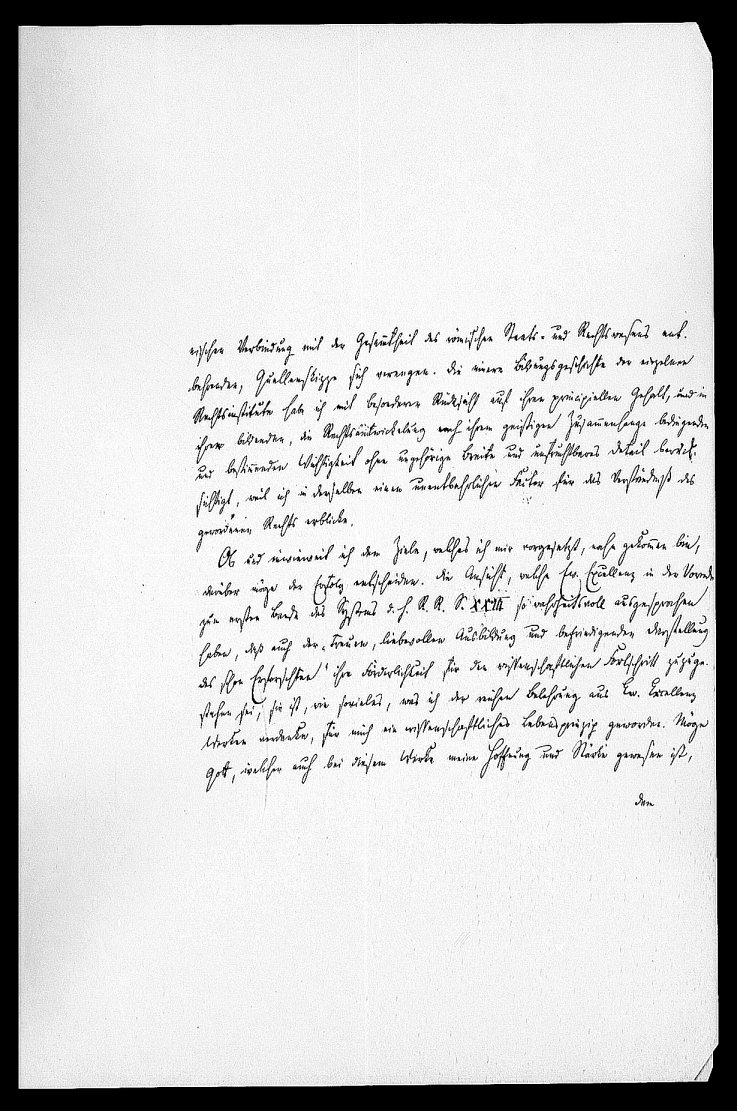 nischen Verbindung mit der Gesamtheit des römischen Staats- und Rechtswesens ent-
behrenden, Quellenskizze sich verengen. Die innere Bildungsgeschichte der einzelnen
Rechtsinstitute habe ich mit besonderer Rücksicht auf ihren principiellen Gehalt, und in
ihrer bildenden, die Rechtsentwickelung nach ihrem geistigen Zusammenhange bedingenden
und bestimmenden Wichtigkeit ohne ungehörige Breite und unfruchtbares Detail berück-
sichtigt, weil ich in derselben einen unentbehrlichen Factor für das Verständniß des
gewordenen Rechts erblicke.
Ob und inwieweit ich dem Ziele, welches ich mir vorgesetzt, nahe gekommen bin,
darüber möge der Erfolg entscheiden. Die Ansicht, welche Ew. Excellenz in der Vorrede
zum ersten Bande des Systems d. h. R. R. S. XXIII so wahrheitsvoll ausgesprochen
haben, daß auch der „treuen, liebevollen Ausbildung und befriedigenden Darstellung
des schon Erforschten" ihre Förderlichkeit für den wissenschaftlichen Fortschritt zuzuge-
stehen sei, sie ist, wie sovieles, was ich der reichen Belehrung aus Ew. Excellenz
Werken verdanke, für mich ein wissenschaftliches Lebensprinzip geworden. Möge
Gott, welcher auch bei diesem Werke meine Hoffnung und Stärke gewesen ist,
den